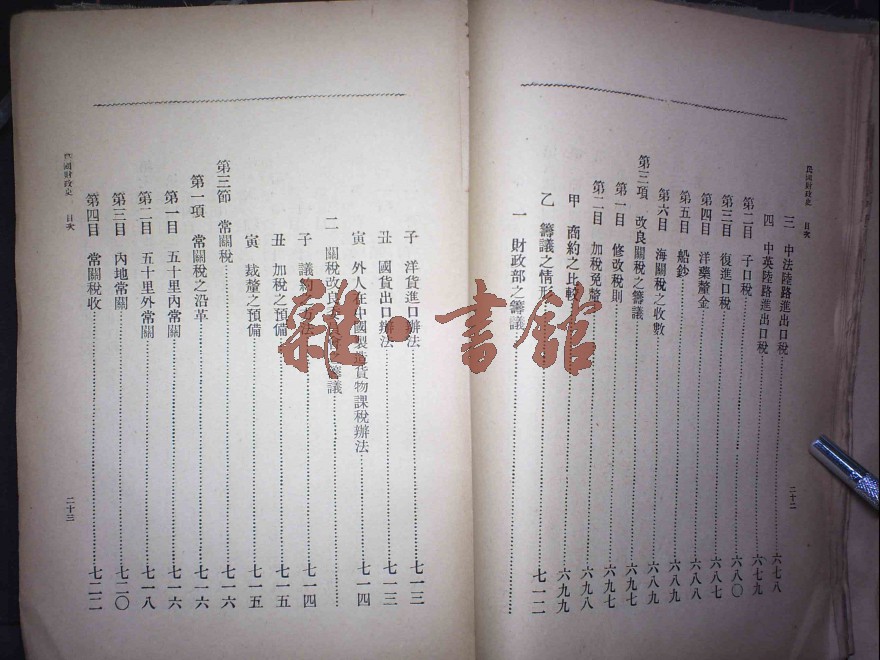 民國財政史 目次 二十二
三 中法陸路進出口稅 六七八
四 中英陸路進出口稅 六七九
第二目 子口稅 六八〇
第三目 復進口稅 六八七
第四目 洋藥釐金 六八八
第五目 船鈔 六八九
第六目 海關稅之收數 六八九
第三項 改良關稅之籌議 六九七
第一目 修改稅則 六九七
第二目 加稅免釐 六九八
甲 商約之比較 六九九
乙 籌議之情形 七一二
一 財政部之籌議
子 洋貨進口辦法 七一三
丑 國貨出口辦法 七一三
寅 外人在中國製造貨物課稅辦法 七一四
二 關稅改良 籌議
子 議約 方法 七一四
丑 加稅之預備 七一五
寅 裁釐之預備 七一五
第三節 常關稅 七一六
第一項 常關稅之沿革 七一六
第一目 五十里內常關 七一六
第二目 五十里外常關 七一八
第三目 內地常關 七二〇
第四目 常關稅收 七二二
民國財政史 目次 二十三
雜·書館